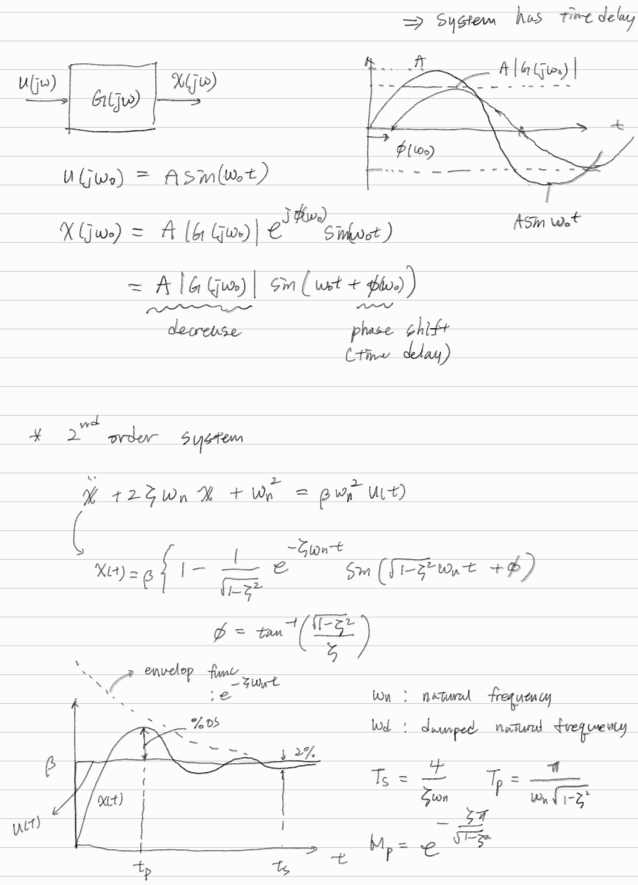 ⇒ System has time delay
U(jω) G(jω) X(jω)
A A A|G(jω)|
t
φ(ω₀)
A sin ω₀t
U(jω₀) = A sin(ω₀t)
X(jω₀) = A |G(jω₀)| e^{jφ(ω₀)} sin(ω₀t)
= A |G(jω₀)| sin (ω₀t + φ(ω₀))
decrease phase shift
(time delay)
* 2nd order system
ẍ + 2ζωn x + ωn² = βωn² u(t)
x(t) = β { 1 - 1/√(1-ζ²) e^{-ζωnt} sin(√(1-ζ²) ωnt + φ)
φ = tan⁻¹(√(1-ζ²)/ζ)
envelop func
: e^{-ζωnt}
%OS
2%
β
x(t)
u(t)
tp ts t
ωn : natural frequency
ωd : damped natural frequency
Ts = 4/ζωn Tp = π/ωn√(1-ζ²)
Mp = e^{-ζπ/√(1-ζ²)}